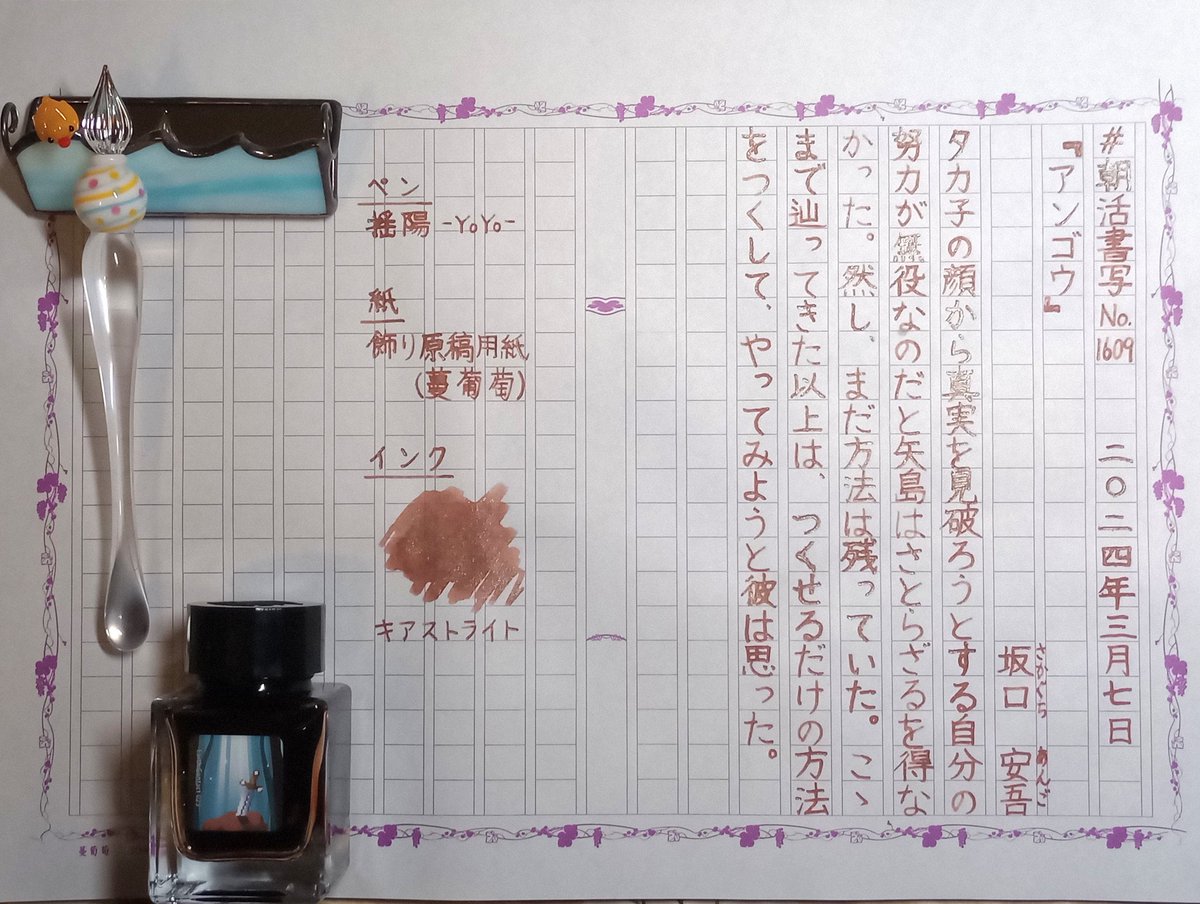 #朝活書写No.1609 二〇二四年三月七日
『アンゴウ』
坂口 安吾
さかぐち あんご
タカ子の顔から真実を見破ろうとする自分の
努力が無役なのだと矢島はさとらざるを得な
かった。然し、まだ方法は残っていた。こゝ
まで辿ってきた以上は、つくせるだけの方法
をつくして、やってみようと彼は思った。
ペン
揺陽 -YoYo-
紙
飾り原稿用紙
(蔓葡萄)
インク
キアストライト
蔓葡萄